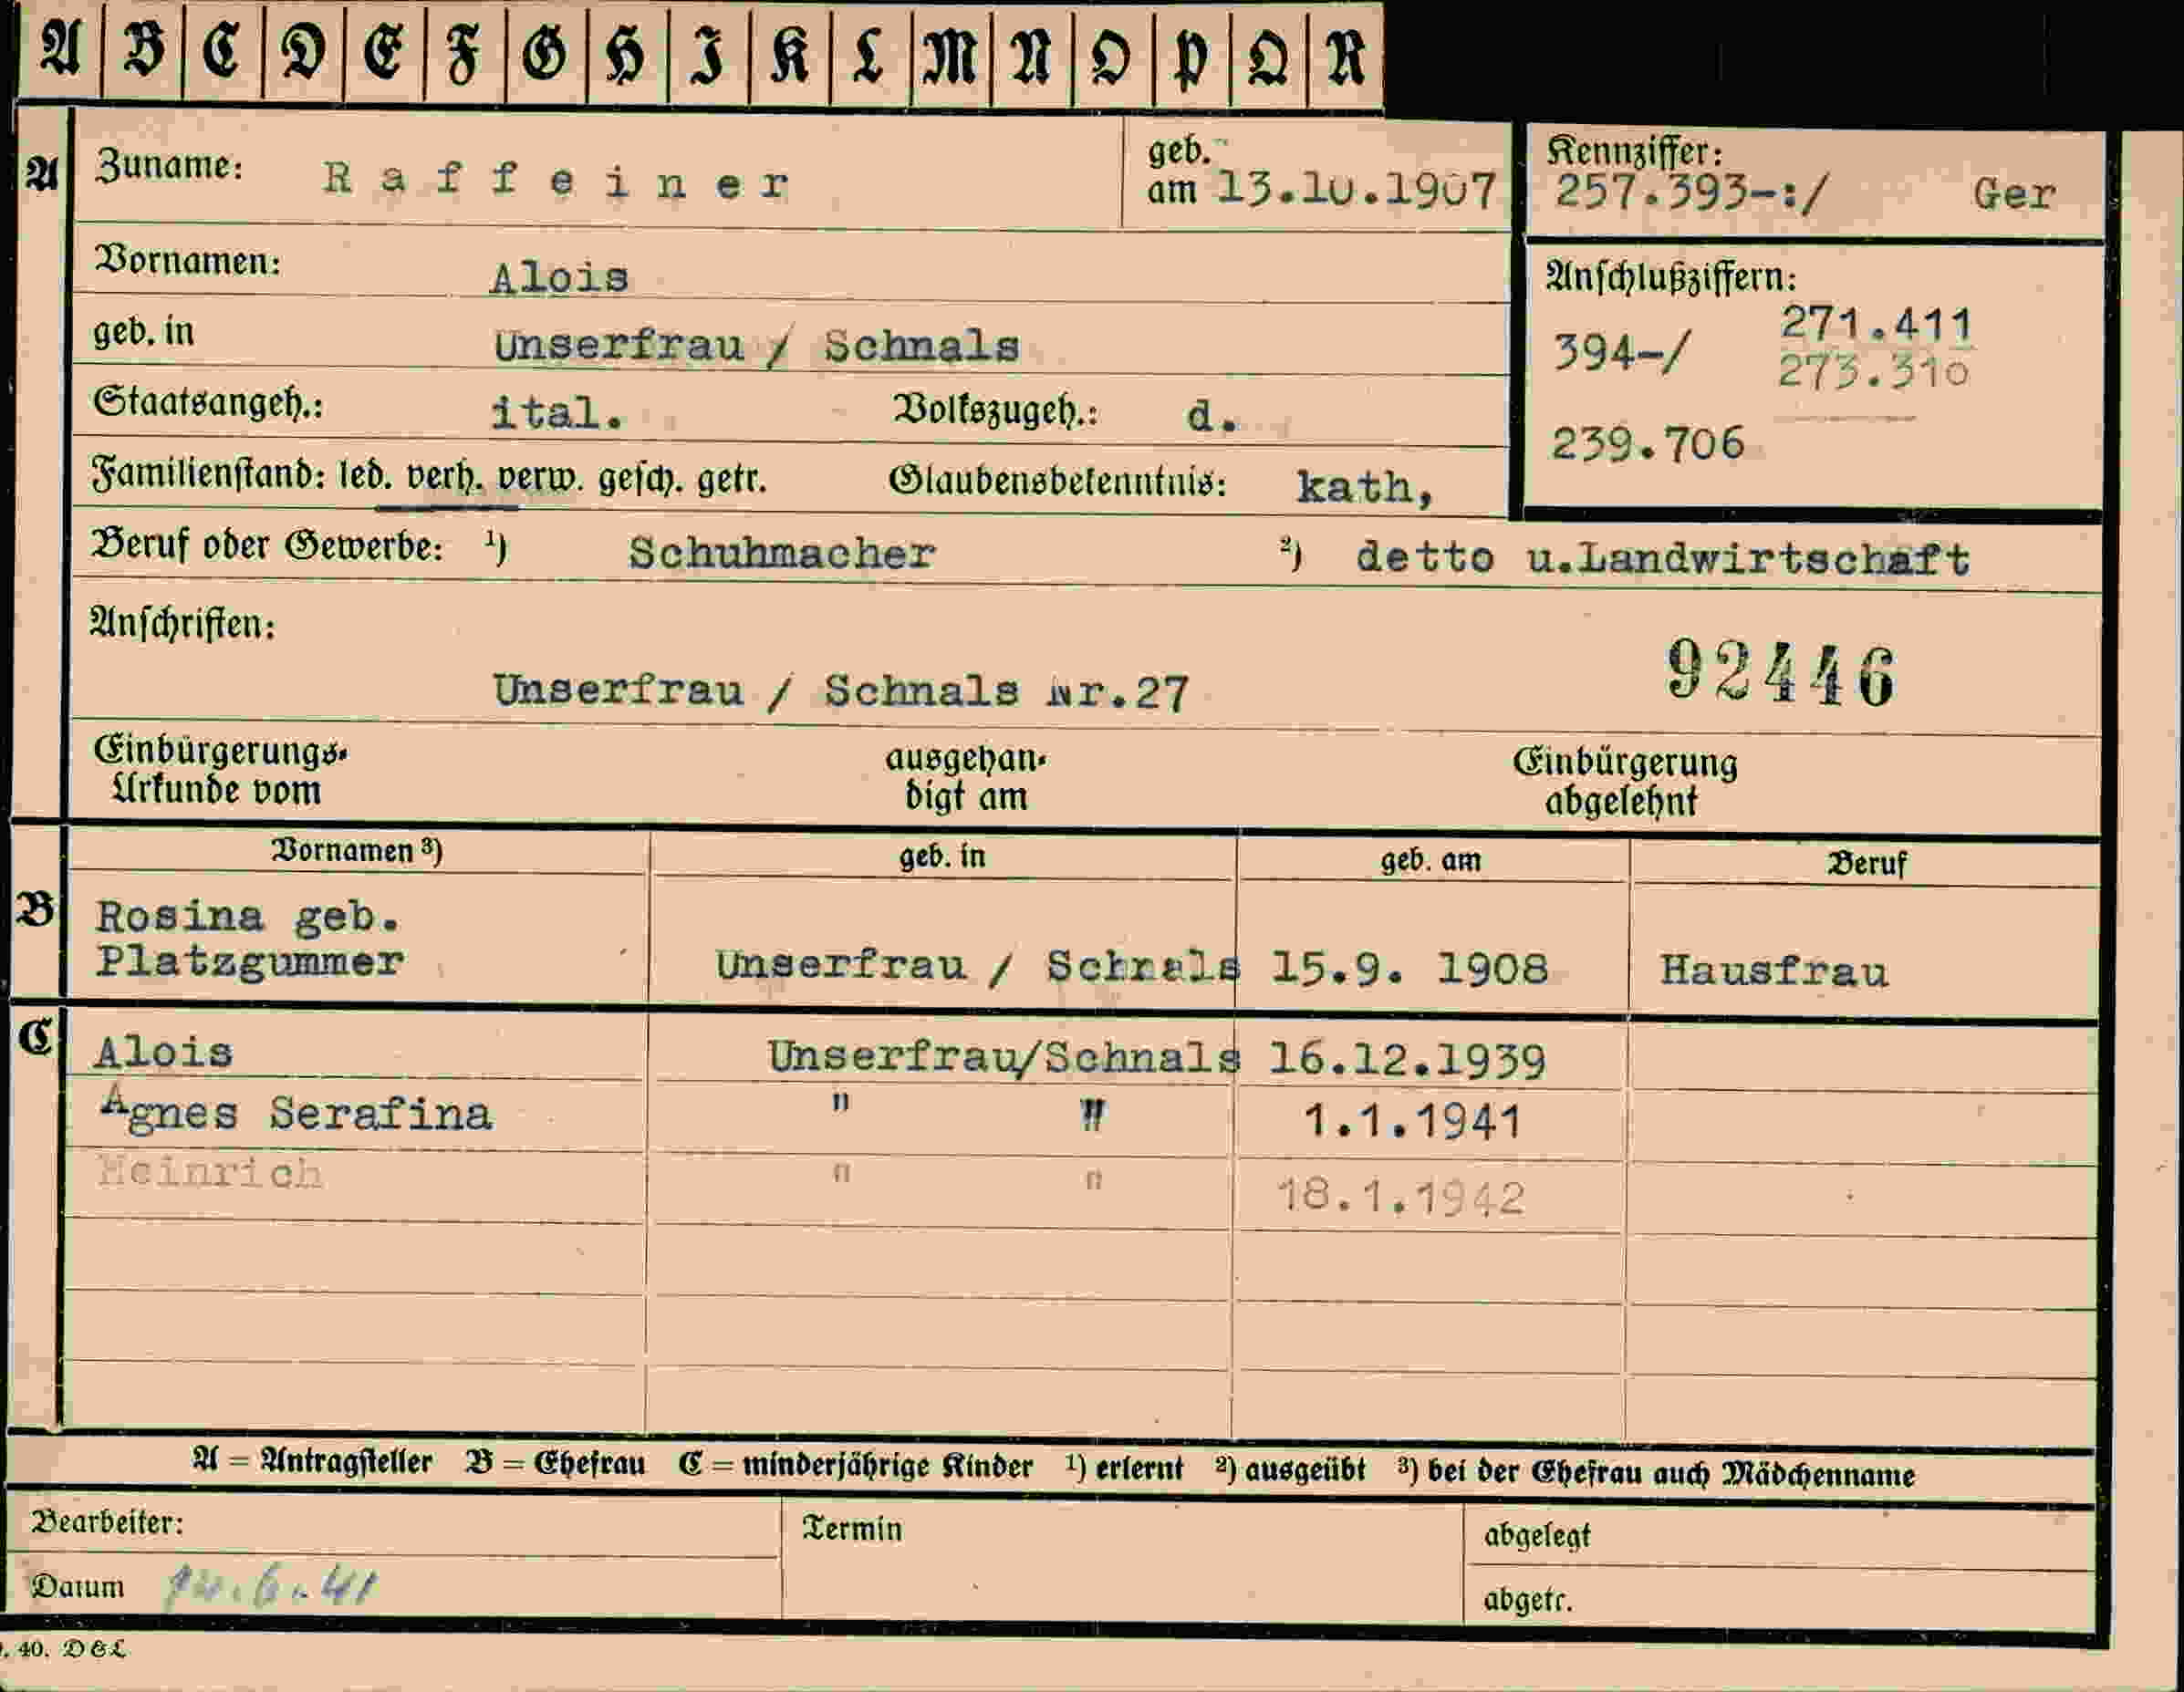 A B C D E F G H I K L M N O P Q R
A Zuname: Raffeiner geb. am 13.10.1907
Kennziffer: 257.393-:/ Ger
Vornamen: Alois
geb. in Unserfrau / Schnals
Anschlußziffern:
394-/ 271.411
273.310
239.706
Staatsangeh.: ital. Volkszugeh.: d.
Familienstand: led. verh. verw. gesch. getr. Glaubensbekenntnis: kath,
Beruf oder Gewerbe: ¹) Schuhmacher ²) detto u.Landwirtschaft
Anschriften:
92446
Unserfrau / Schnals Nr.27
Einbürgerungs-Urkunde vom ausgehändigt am Einbürgerung abgelehnt
Vornamen ³) geb. in geb. am Beruf
B Rosina geb.
Platzgummer Unserfrau / Schnals 15.9. 1908 Hausfrau
C Alois Unserfrau/Schnals 16.12.1939
Agnes Serafina " " 1.1.1941
Heinrich " " 18.1.1942
A = Antragsteller B = Ehefrau C = minderjährige Kinder ¹) erlernt ²) ausgeübt ³) bei der Ehefrau auch Mädchenname
Bearbeiter: Termin abgelegt
Datum abgetr.
. 40. DEL